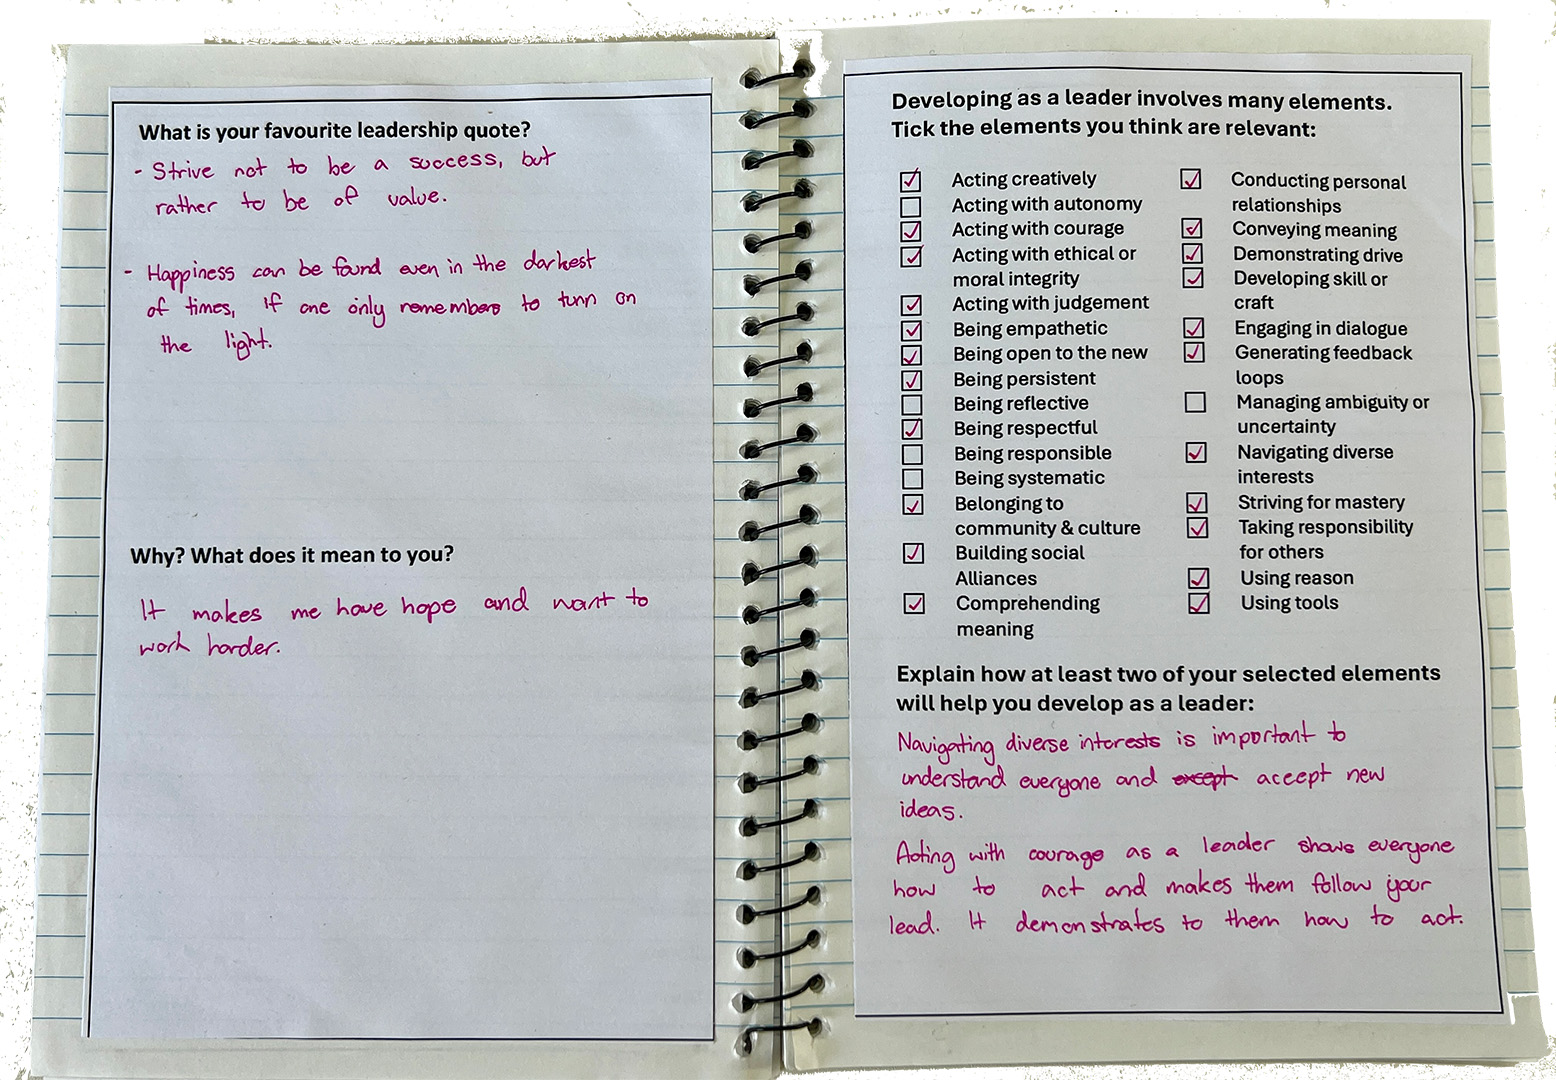 What is your favourite leadership quote?
- Strive not to be a success, but
rather to be of value.
- Happiness can be found even in the darkest
of times, if one only remembers to turn on
the light.
Why? What does it mean to you?
It makes me have hope and want to
work harder.
Developing as a leader involves many elements.
Tick the elements you think are relevant:
☑ Acting creatively
☐ Acting with autonomy
☑ Acting with courage
☑ Acting with ethical or
moral integrity
☑ Acting with judgement
☑ Being empathetic
☑ Being open to the new
☑ Being persistent
☐ Being reflective
☑ Being respectful
☐ Being responsible
☐ Being systematic
☑ Belonging to
community & culture
☑ Building social
Alliances
☑ Comprehending
meaning
☑ Conducting personal
relationships
☑ Conveying meaning
☑ Demonstrating drive
☑ Developing skill or
craft
☑ Engaging in dialogue
☑ Generating feedback
loops
☐ Managing ambiguity or
uncertainty
☑ Navigating diverse
interests
☑ Striving for mastery
☑ Taking responsibility
for others
☑ Using reason
☑ Using tools
Explain how at least two of your selected elements
will help you develop as a leader:
Navigating diverse interests is important to
understand everyone and ~~except~~ acceept new
ideas.
Acting with courage as a leader shows everyone
how to act and makes them follow your
lead. It demonstrates to them how to act.